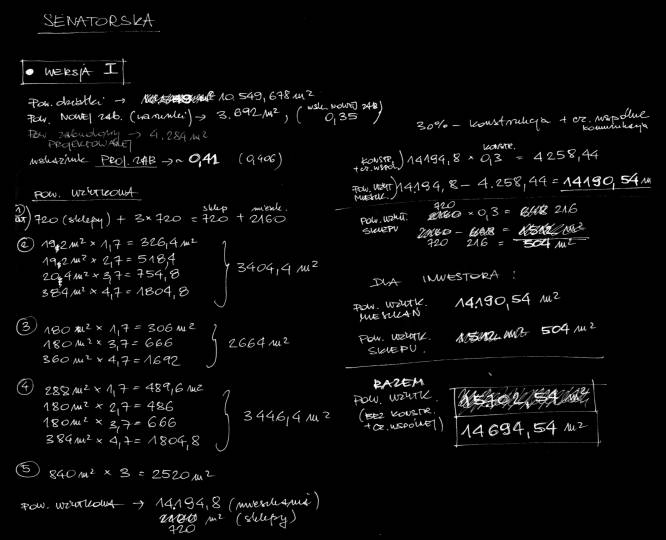 SENATORSKA
• WERSJA I
Pow. działki → 10.549,678 m²
Pow. NOWEJ zab. (warunki) → 3.692 m², (wsk. NOWEJ ZAB 0,35)
Pow. zabudowy → 4.284 m²
PROJEKTOWANEJ
wskaźnik PROJ. ZAB → ~ 0,41 (0,406)
POW. UŻYTKOWA
1) 720 (sklepy) + 3 × 720 = 720 sklep + 2160 mieszk.
2 19,2 m² × 1,7 = 326,4 m²
19,2 m² × 2,7 = 518,4
20,4 m² × 3,7 = 754,8
384 m² × 4,7 = 1804,8
3404,4 m²
3 180 m² × 1,7 = 306 m²
180 m² × 3,7 = 666
360 m² × 4,7 = 1692
2664 m²
4 288 m² × 1,7 = 489,6 m²
180 m² × 2,7 = 486
180 m² × 3,7 = 666
384 m² × 4,7 = 1804,8
3446,4 m²
5 840 m² × 3 = 2520 m²
POW. UŻYTKOWA → 14194,8 (mieszkania)
2160 m² (sklepy)
720
30% - konstrukcja + cz. wspólne
komunikacja
KONSTR. + CZ. WSPÓL.) 14194,8 × 0,3 = 4258,44 KONSTR.
POW. UŻYT MIESZK.) 14194,8 - 4.258,44 = 14190,54 m
POW. UŻYTK. SKLEPU 720 × 0,3 = 648 216
2160 - 648 = 1512 m²
720 216 = 504 m²
DLA INWESTORA:
POW. UŻYTK. MIESZKAŃ 14.190,54 m²
POW. UŻYTK. SKLEPU. 1512 m² 504 m²
RAZEM
POW. UŻYTK. 15702,54 m²
(BEZ KONSTR. + CZ. WSPÓLNEJ) 14694,54 m²